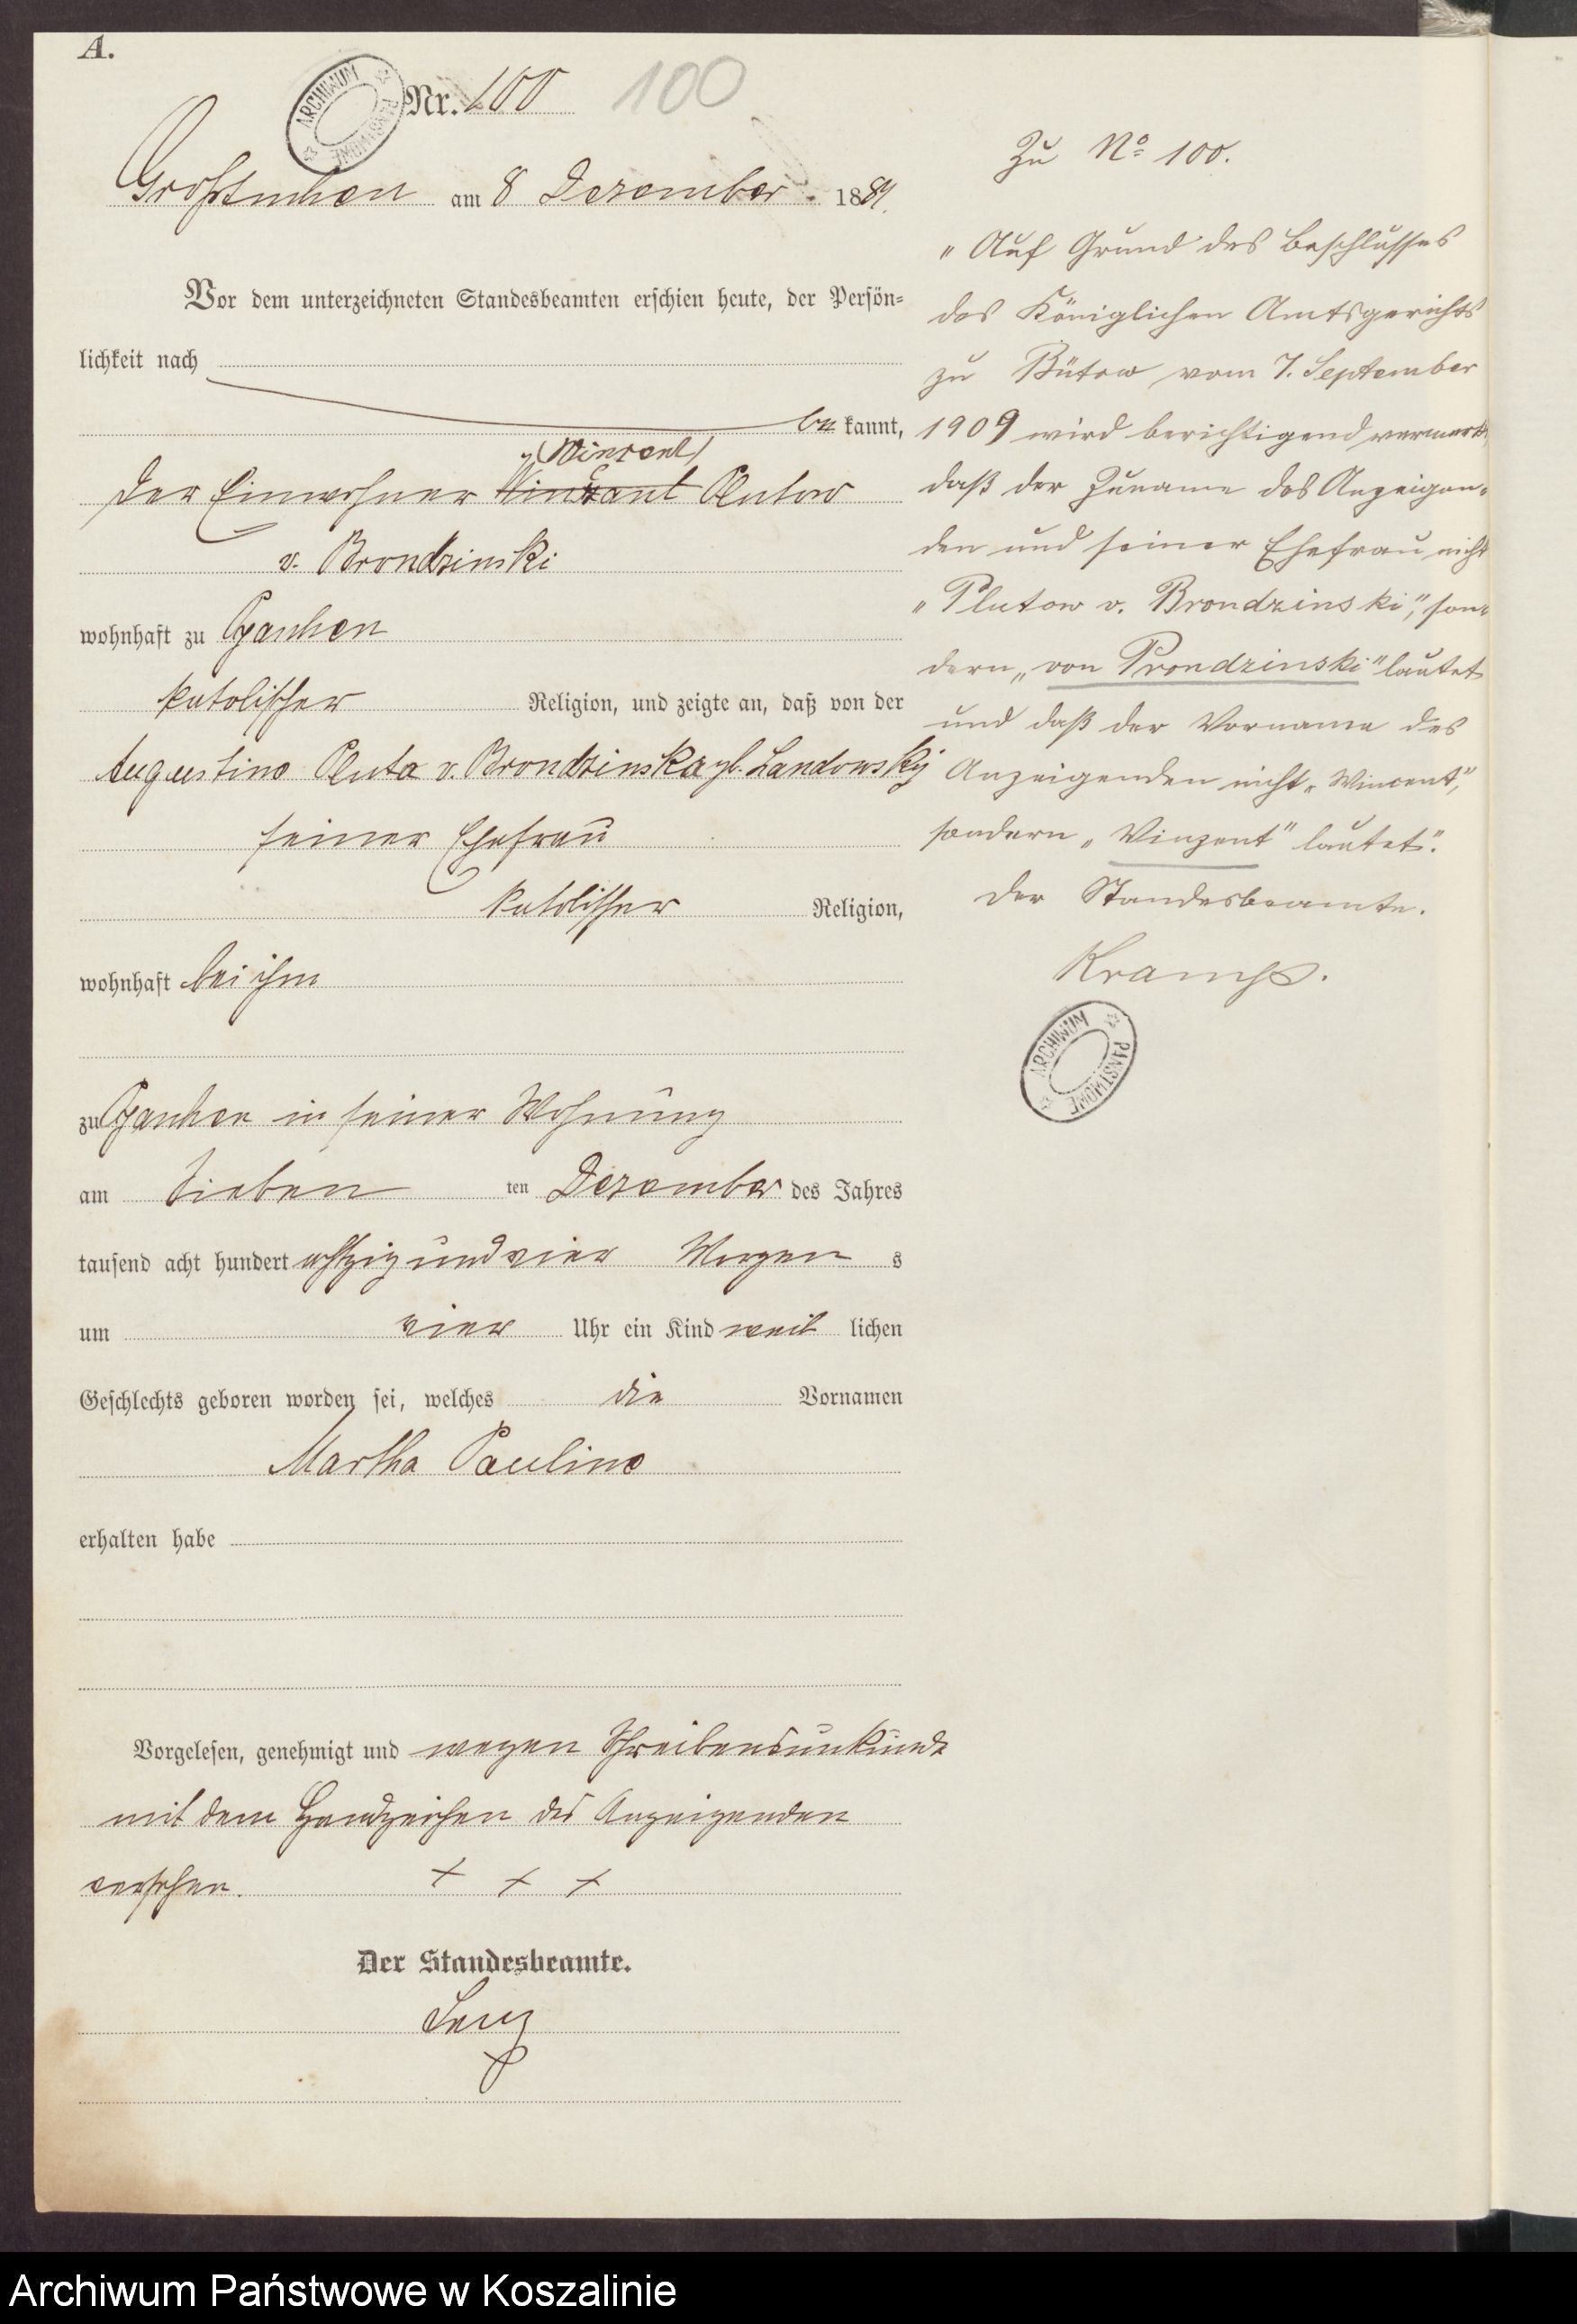 A.
ARCHIWUM PAŃSTWOWE
Nr. 100 100
Großtuchen am 8 Dezember 1884.
Vor dem unterzeichneten Standesbeamten erschien heute, der Persön=
lichkeit nach
be kannt,
(Winzent)
der Einwohner Plutow
v. Brondzinski
wohnhaft zu
katolischer Religion, und zeigte an, daß von der
Augustine Pluta v. Brondzinska gb. Landowsky
seiner Ehefrau
katolischer Religion,
wohnhaft bei ihm
zu in seiner Wohnung
am Sieben ten Dezember des Jahres
tausend acht hundert achtzig und vier Morgen s
um vier Uhr ein Kind weib lichen
Geschlechts geboren worden sei, welches die Vornamen
Martha Pauline
erhalten habe
Vorgelesen, genehmigt und wegen Schreibensunkunde
mit dem Handzeichen des Anzeigenden
versehen. + + +
Der Standesbeamte.
Lenz
Zu No 100.
"Auf Grund des Beschlusses
des Königlichen Amtsgerichts
zu Bütow vom 7. September
1909 wird berichtigend vermerkt,
daß der Zuname des Anzeigen-
den und seiner Ehefrau nicht
"Plutow v. Brondzinski", son-
dern "von Prondzinski" lautet
und daß der Vorname des
Anzeigenden nicht "Wincent",
sondern "Vinzent" lautet".
Der Standesbeamte.
ARCHIWUM PAŃSTWOWE
Archiwum Państwowe w Koszalinie